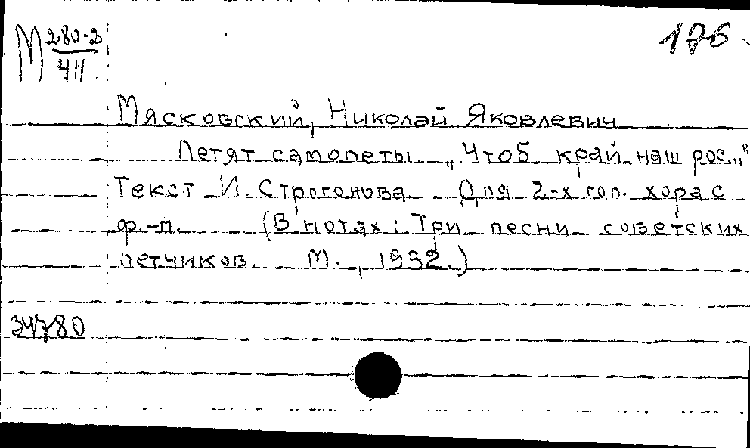 М 280-2
411
Мясковский, Николай Яковлевич
Летят самолеты „Чтоб край наш рос..."
Текст И. Строганова Для 2-х гол. хора с
ф.-п. (В нотах: Три песни советских
летчиков. М., 1932.)
34780